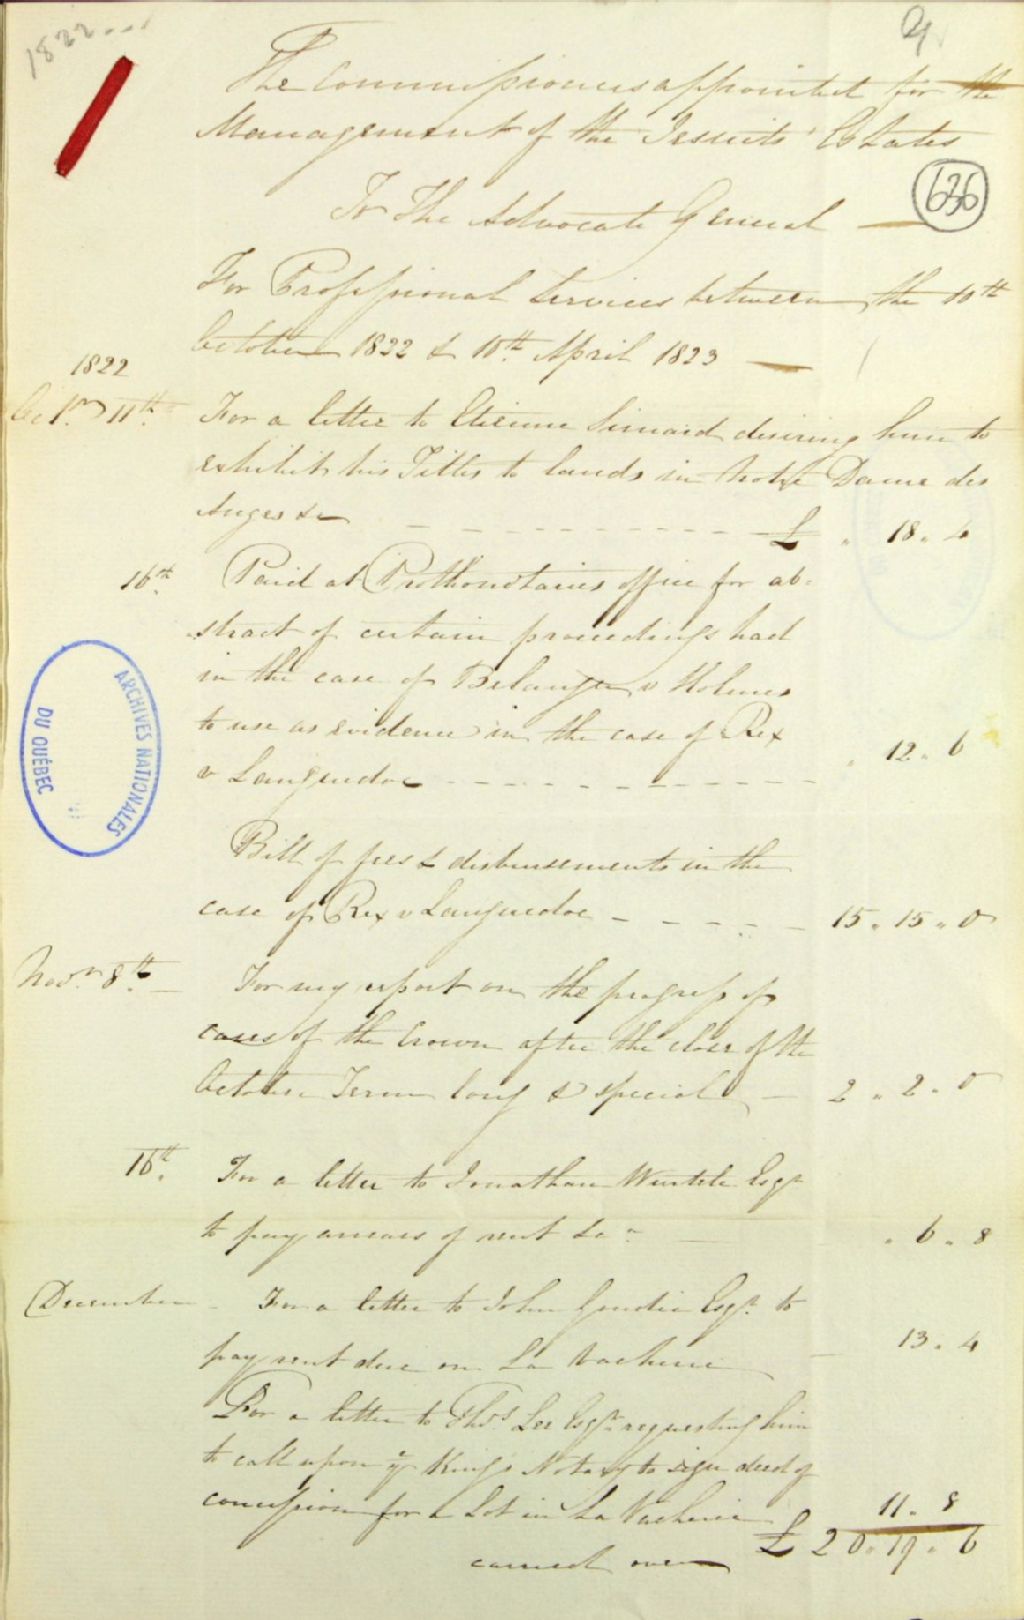 1822...
The Commissioners appointed for the
Management of the Jesuits' Estates
636
To The Advocate General
For Professional Services between the 10th
October 1822 & 10th April 1823
1822
Octr 11th For a letter to Etienne Simard desiring him to
exhibit his Titles to lands in Notre Dame des
Anges &c £ " 18 " 4
16th Paid at Prothonotaries office for ab-
stract of certain proceedings had
in the case of Belanger v Holmes
to use as evidence in the case of Rex
v Languedoc " 12 " 6
Bill of fees & disbursements in the
case of Rex v Languedoc 15 " 15 " 0
Novr 8th For my report on the progress of
cases of the Crown after the close of the
October Term long & special 2 " 2 " 0
16th For a letter to Jonathan Wurtele Esqr
to pay arrears of rent &c " 6 " 8
December For a letter to John Goudie Esqr to
pay rent due on La Vacherie 13 " 4
For a letter to Thos Lee Esqr requesting him
to call upon ye Kings Notary to sign deed of
concession for a Lot in La Vacherie 11 " 8
carried over £ 20 " 19 " 6
ARCHIVES NATIONALES
DU QUÉBEC